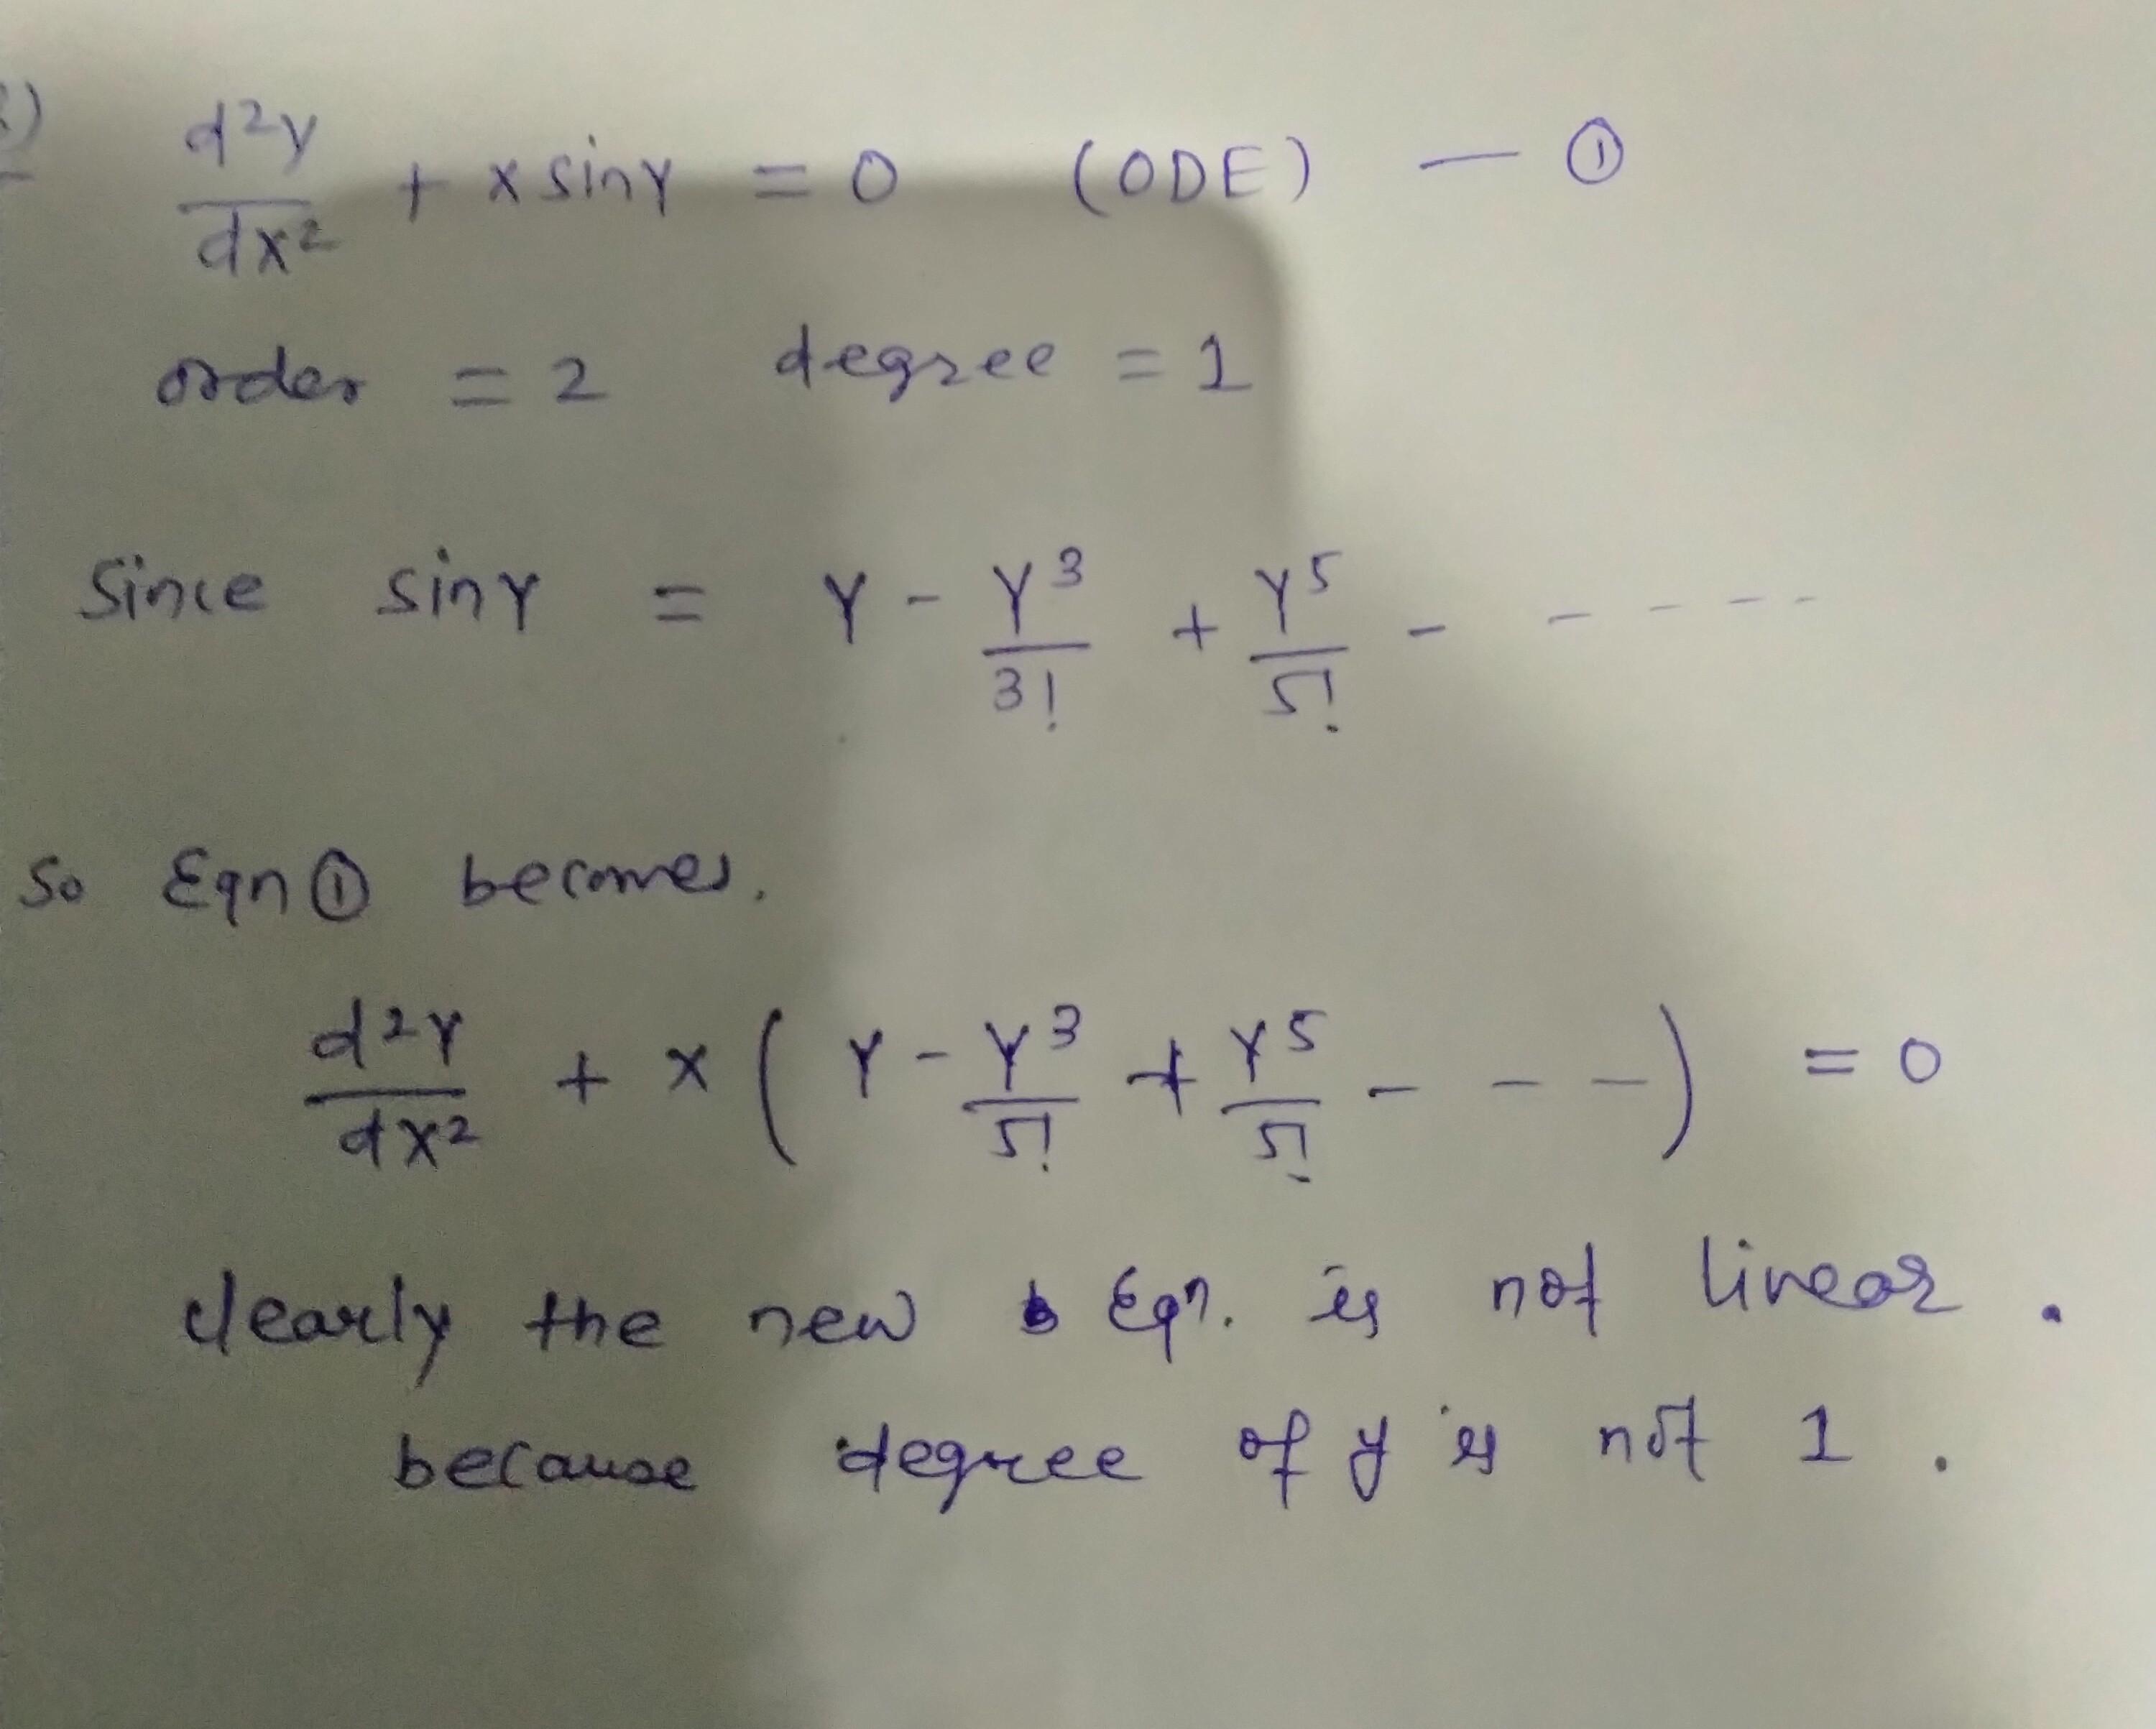 d²y/dx² + x siny = 0 (ODE) — ①
order = 2 degree = 1
Since siny = y - y³/3! + y⁵/5! - - - - -
So Eqn ① becomes.
d²y/dx² + x ( y - y³/5! + y⁵/5! - - - ) = 0
clearly the new Eqn. is not linear.
because degree of y is not 1.